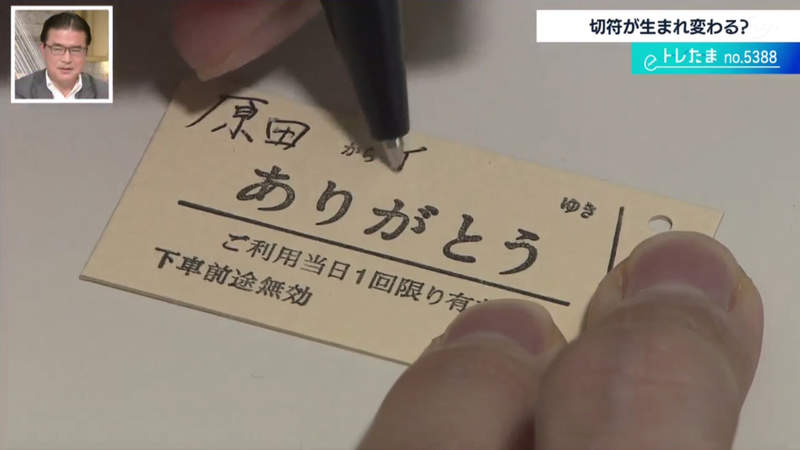 切符が生まれ変わる?
eトレたま no.5388
原田 から
ありがとう ゆき
ご利用当日1回限り有
下車前途無効